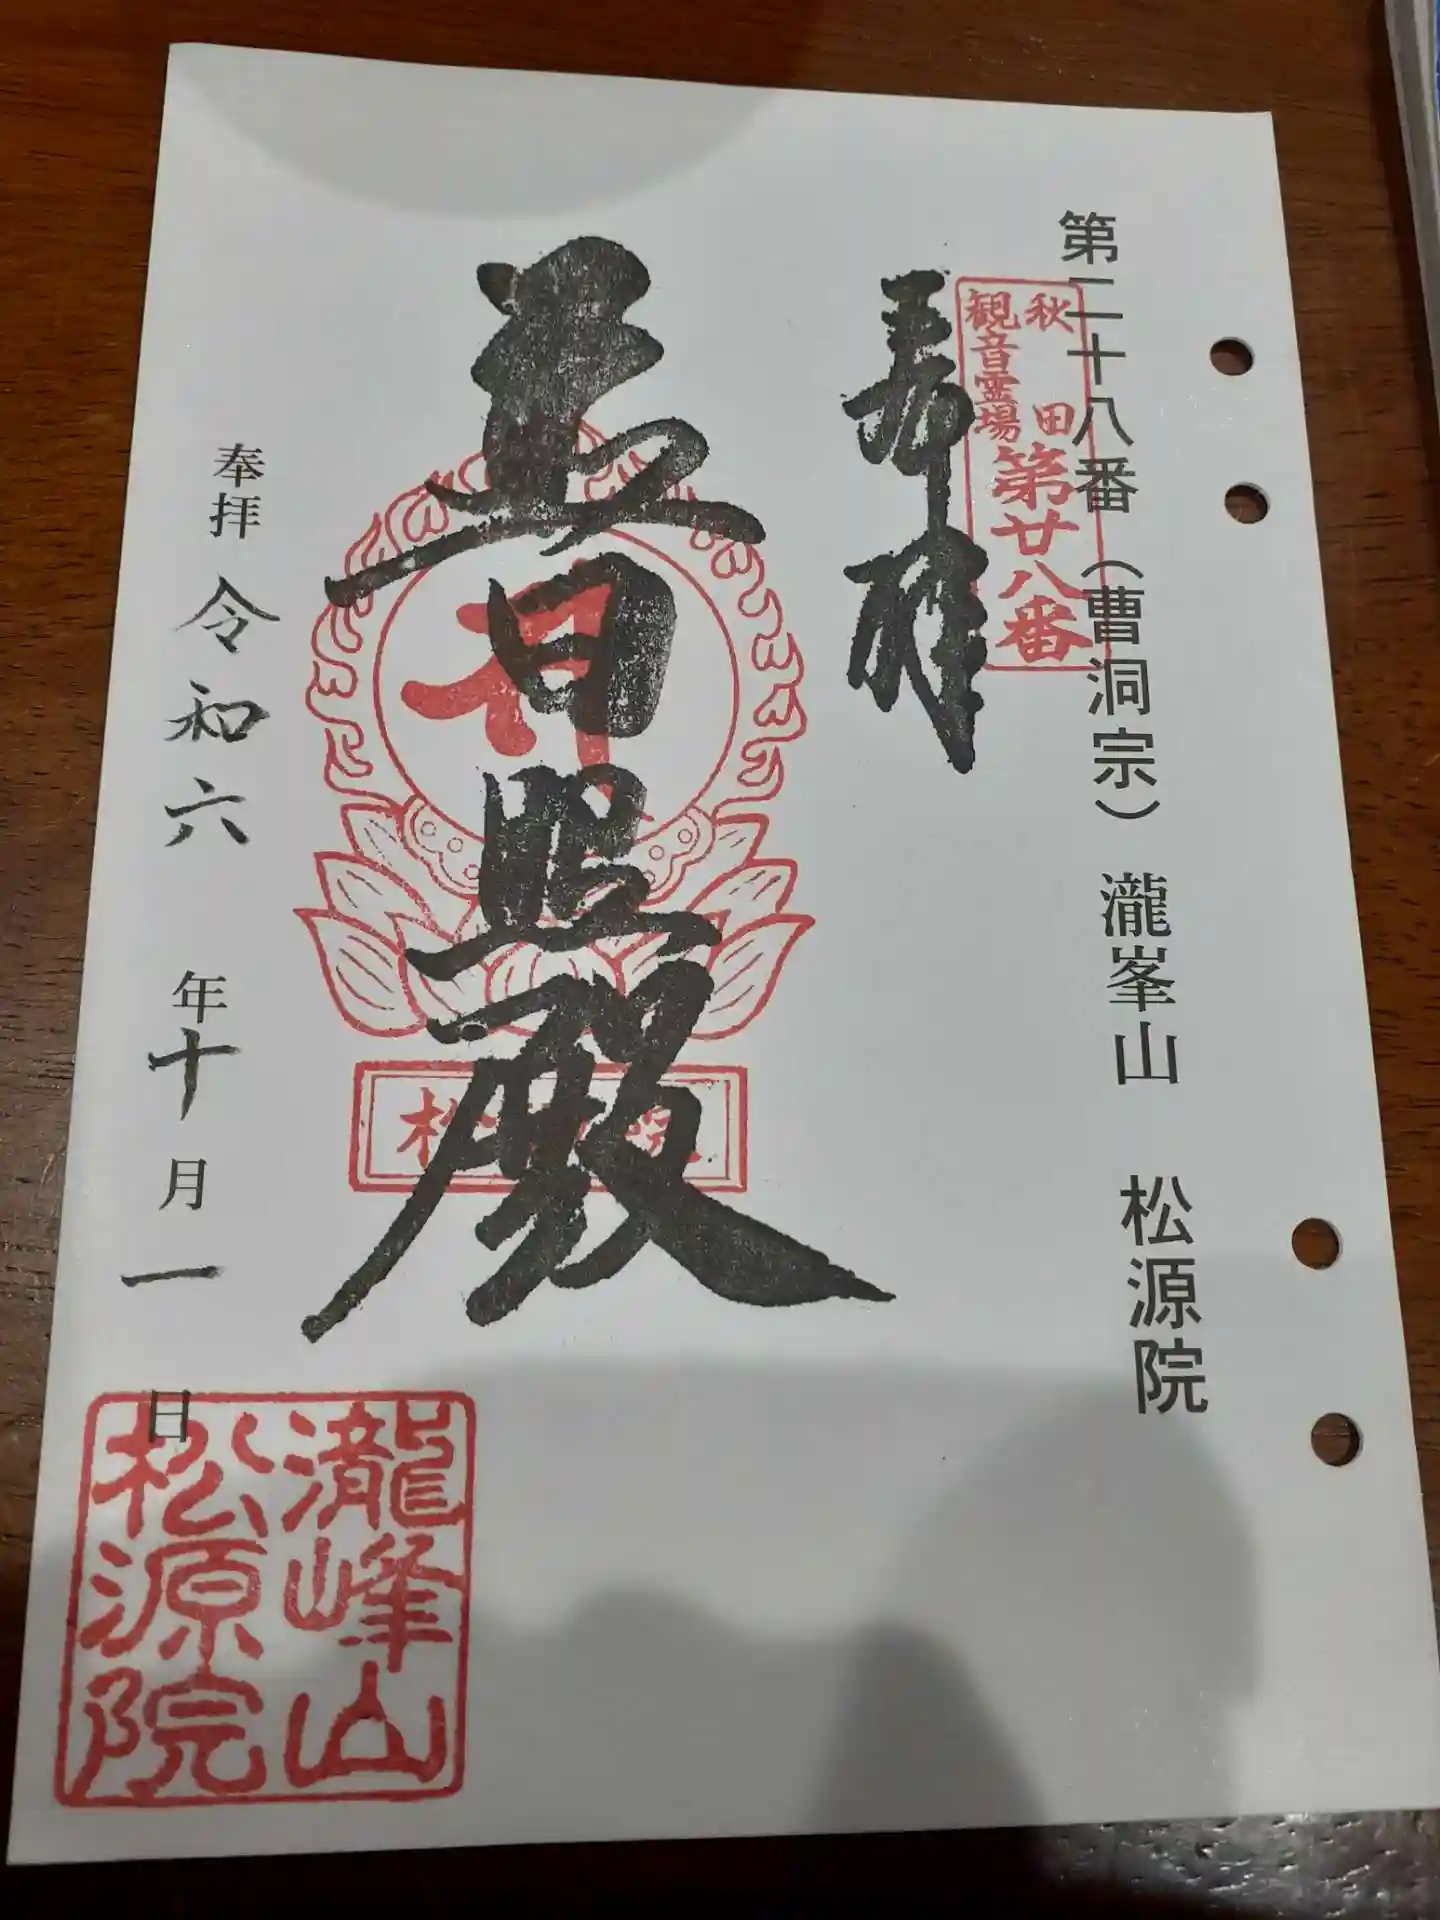 第二十八番（曹洞宗） 瀧峯山 松源院
秋田
観音霊場
第廿八番
奉拝
日照殿
奉拝 令和六年十月一日
瀧峰山
松源院